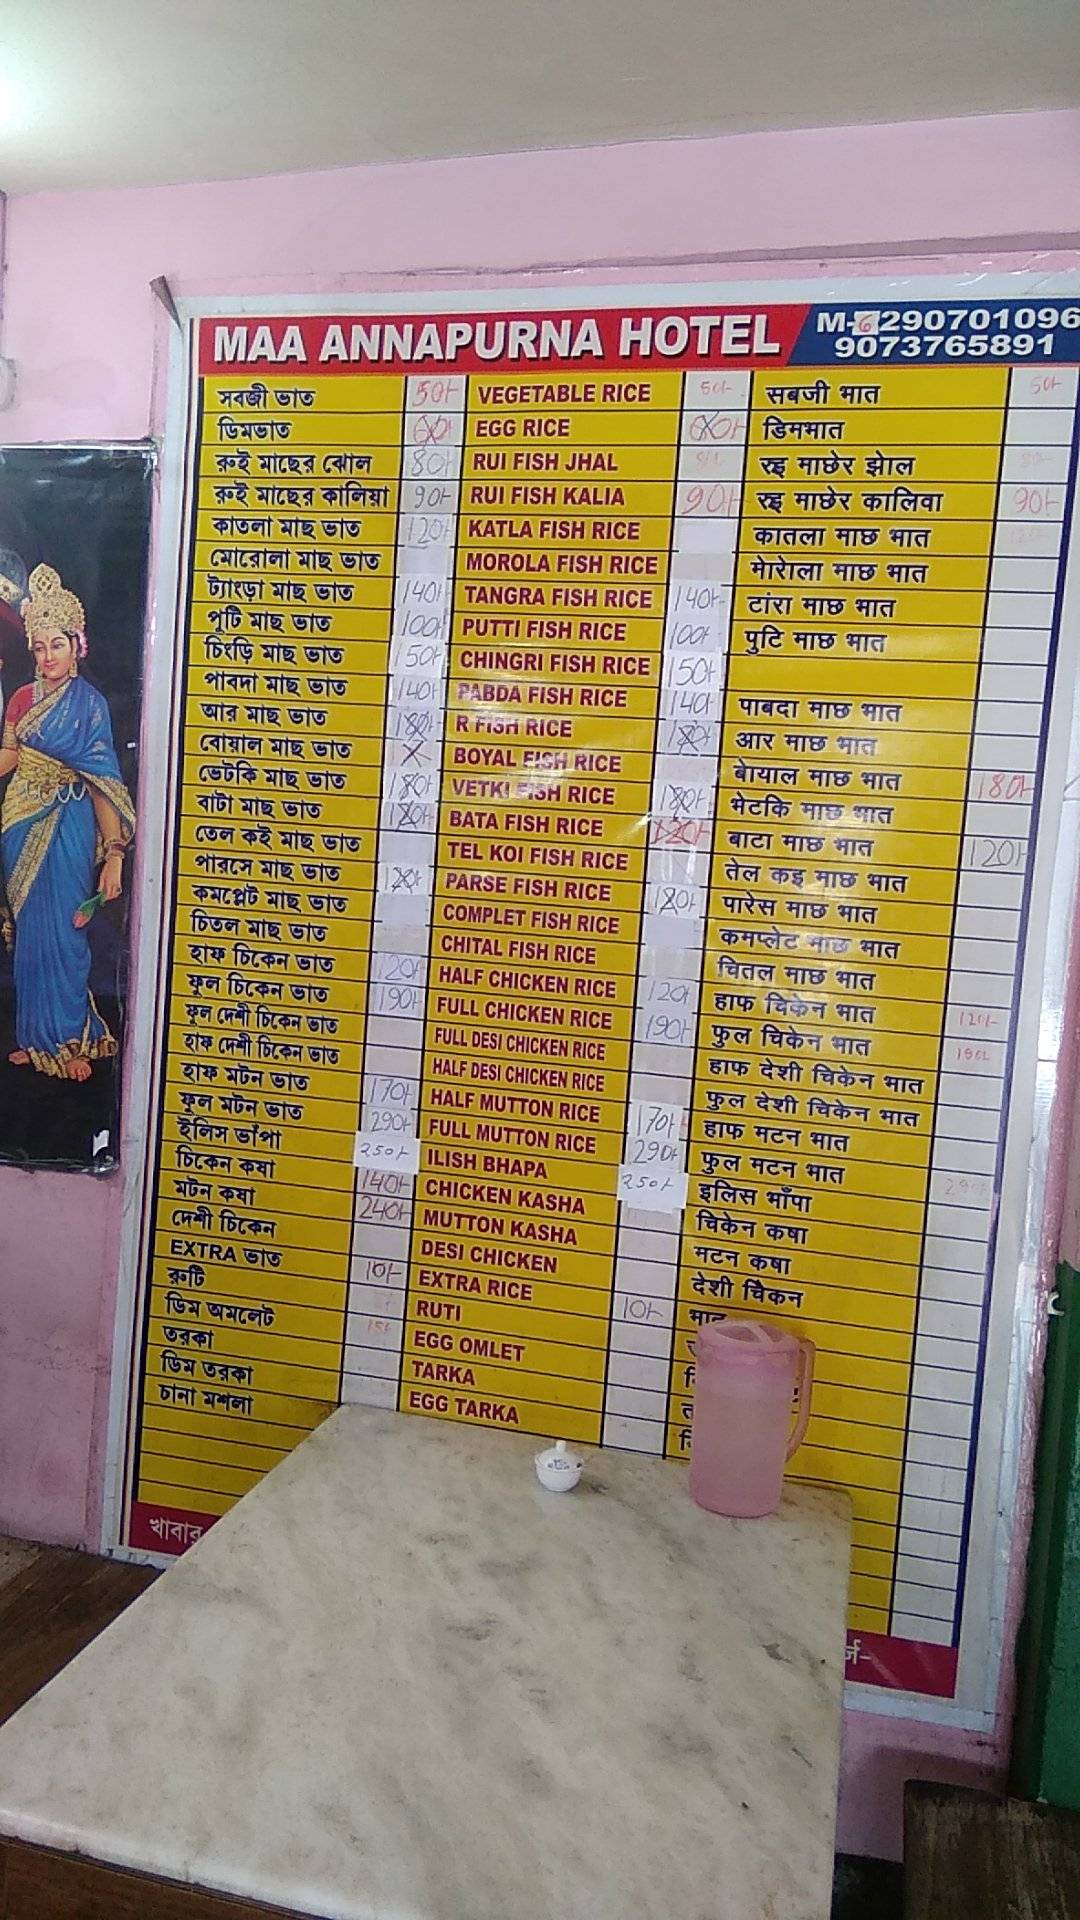 MAA ANNAPURNA HOTEL
M-6290701096
9073765891
সবজী ভাত 50/- VEGETABLE RICE 50/- सबजी भात 50/-
ডিমভাত 60/- EGG RICE 60/- डिमभात
রুই মাছের ঝোল 80/- RUI FISH JHAL रुइ माछेर झोल
রুই মাছের কালিয়া 90/- RUI FISH KALIA 90/- रुइ माछेर कालिवा 90/-
কাতলা মাছ ভাত 120/- KATLA FISH RICE कातला माछ भात
মোরোলা মাছ ভাত MOROLA FISH RICE मोरोला माछ भात
ট্যাংড়া মাছ ভাত 140/- TANGRA FISH RICE 140/- टांरा माछ भात
পুটি মাছ ভাত 100/- PUTTI FISH RICE 100/- पुटि माछ भात
চিংড়ি মাছ ভাত 150/- CHINGRI FISH RICE 150/-
পাবদা মাছ ভাত 140/- PABDA FISH RICE 140/- पाबदा माछ भात
আর মাছ ভাত 180/- R FISH RICE 180/- आर माछ भात
বোয়াল মাছ ভাত BOYAL FISH RICE बोयाल माछ भात 180/-
ভেটকি মাছ ভাত 180/- VETKI FISH RICE 180/- भेटकि माछ भात
বাটা মাছ ভাত 120/- BATA FISH RICE 120/- बाटा माछ भात 120/-
তেল কই মাছ ভাত TEL KOI FISH RICE तेल कइ माछ भात
পারসে মাছ ভাত 120/- PARSE FISH RICE 120/- पारेस माछ भात
কমপ্লেট মাছ ভাত COMPLET FISH RICE कमप्लेट माछ भात
চিতল মাছ ভাত CHITAL FISH RICE चितल माछ भात
হাফ চিকেন ভাত 120/- HALF CHICKEN RICE 120/- हाफ चिकेन भात 120/-
ফুল চিকেন ভাত 190/- FULL CHICKEN RICE 190/- फुल चिकेन भात 190/-
ফুল দেশী চিকেন ভাত FULL DESI CHICKEN RICE हाफ देशी चिकेन भात
হাফ দেশী চিকেন ভাত HALF DESI CHICKEN RICE फुल देशी चिकेन भात
হাফ মটন ভাত 170/- HALF MUTTON RICE 170/- हाफ मटन भात
ফুল মটন ভাত 290/- FULL MUTTON RICE 290/- फुल मटन भात 290/-
ইলিস ভাঁপা 250/- ILISH BHAPA 250/- इलिस भाँपा
চিকেন কষা 140/- CHICKEN KASHA चिकेन कषा
মটন কষা 240/- MUTTON KASHA मटन कषा
দেশী চিকেন DESI CHICKEN देशी चिकेन
EXTRA ভাত 10/- EXTRA RICE 10/- भात
রুটি RUTI
ডিম অমলেট 15/- EGG OMLET
তরকা TARKA
ডিম তরকা EGG TARKA
চানা মশলা
খাবার